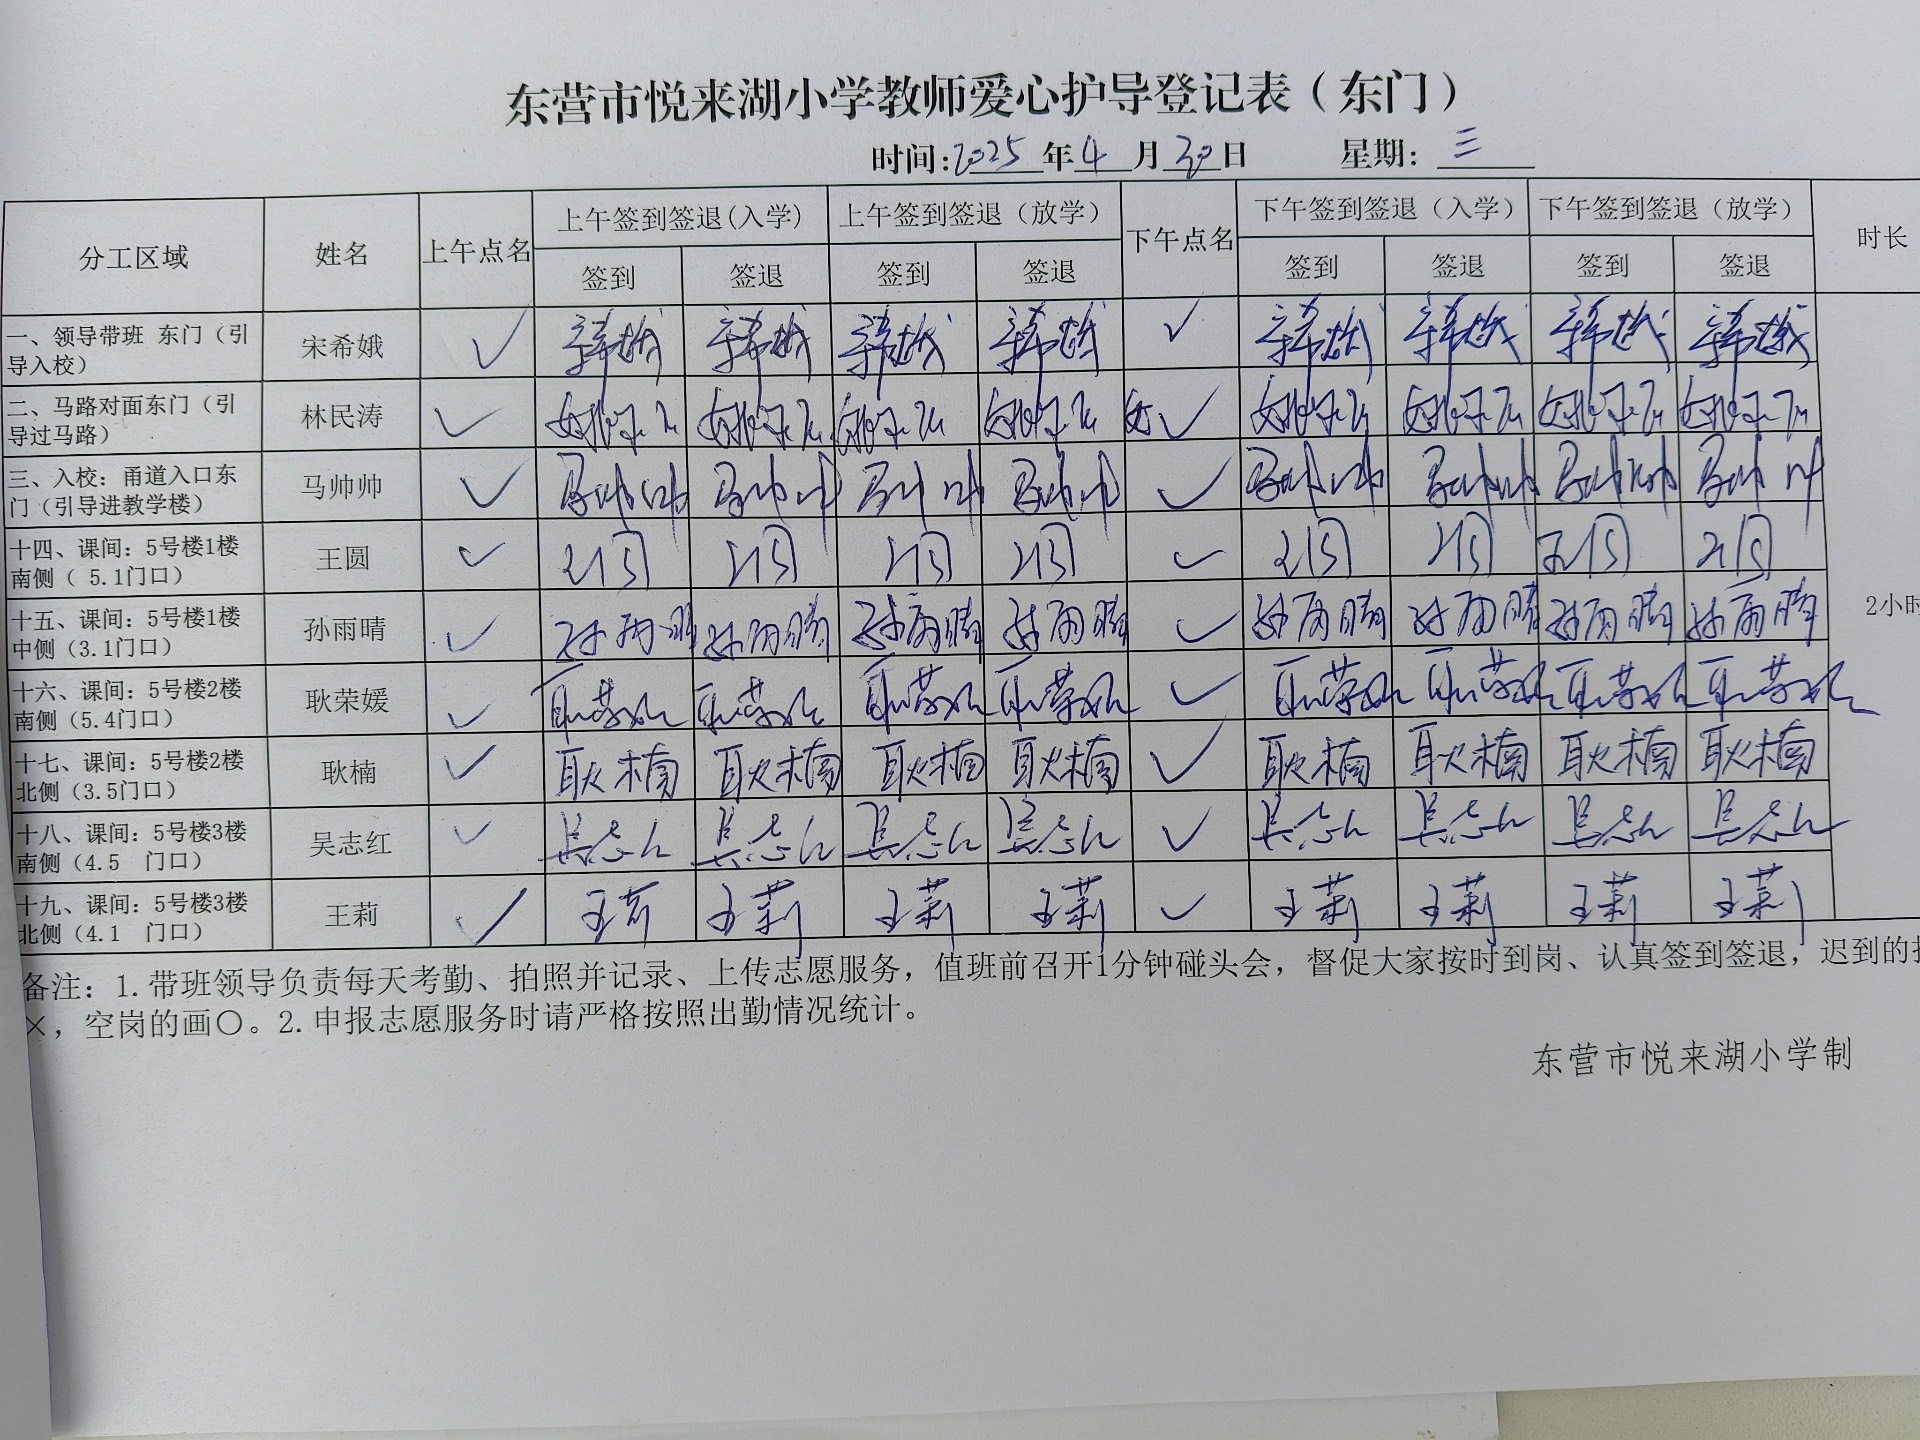 东营市悦来湖小学教师爱心护导登记表（东门）
时间:2025年4月30日 星期: 三
分工区域 姓名 上午点名 上午签到签退(入学) 上午签到签退（放学） 下午点名 下午签到签退（入学） 下午签到签退（放学） 时长
签到 签退 签到 签退 签到 签退 签到 签退
一、领导带班 东门（引
导入校） 宋希娥 ✓ 宋希娥 宋希娥 宋希娥 宋希娥 ✓ 宋希娥 宋希娥 宋希娥 宋希娥
二、马路对面东门（引
导过马路） 林民涛 ✓ ✓
三、入校: 甬道入口东
门（引导进教学楼） 马帅帅 ✓ 马帅帅 马帅帅 马帅帅 马帅帅 ✓ 马帅帅 马帅帅 马帅帅 马帅帅
十四、课间: 5号楼1楼
南侧（ 5.1门口） 王圆 ✓ 王圆 王圆 王圆 王圆 ✓ 王圆 王圆 王圆 王圆
十五、课间: 5号楼1楼
中侧（3.1门口） 孙雨晴 ✓ 孙雨晴 孙雨晴 孙雨晴 孙雨晴 ✓ 孙雨晴 孙雨晴 孙雨晴 孙雨晴 2小时
十六、课间: 5号楼2楼
南侧（5.4门口） 耿荣媛 ✓ 耿荣媛 耿荣媛 耿荣媛 耿荣媛 ✓ 耿荣媛 耿荣媛 耿荣媛 耿荣媛
十七、课间: 5号楼2楼
北侧（3.5门口） 耿楠 ✓ 耿楠 耿楠 耿楠 耿楠 ✓ 耿楠 耿楠 耿楠 耿楠
十八、课间: 5号楼3楼
南侧（4.5 门口） 吴志红 ✓ 吴志红 吴志红 吴志红 吴志红 ✓ 吴志红 吴志红 吴志红 吴志红
十九、课间: 5号楼3楼
北侧（4.1 门口） 王莉 ✓ 王莉 王莉 王莉 王莉 ✓ 王莉 王莉 王莉 王莉
备注: 1.带班领导负责每天考勤、拍照并记录、上传志愿服务，值班前召开1分钟碰头会，督促大家按时到岗、认真签到签退，迟到的
×，空岗的画〇。2.申报志愿服务时请严格按照出勤情况统计。
东营市悦来湖小学制